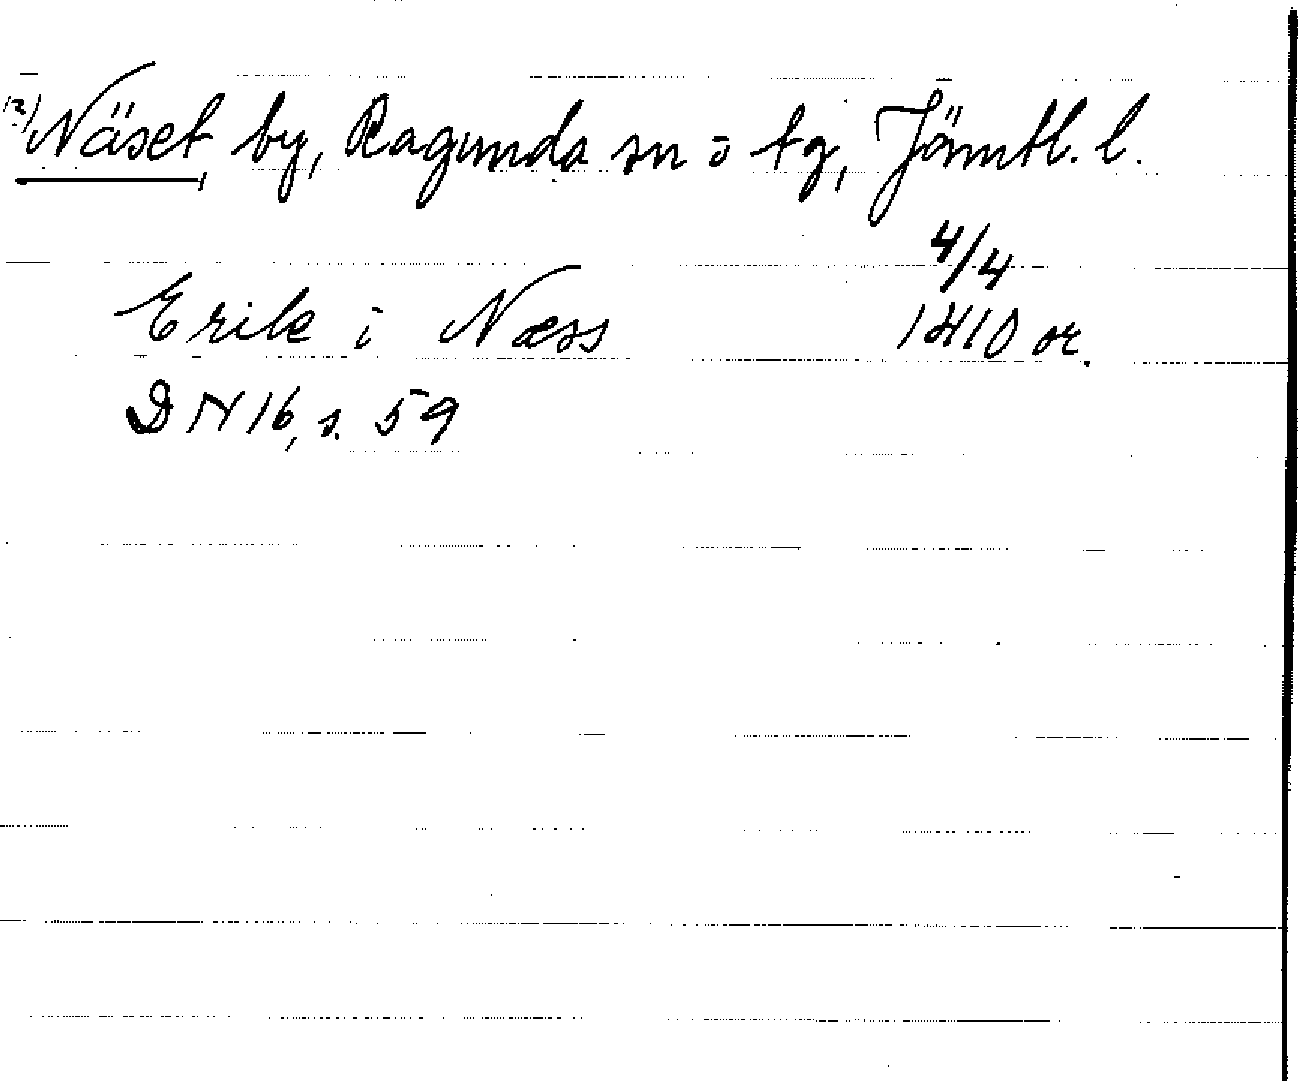 12) Näset, by, Ragunda sn o tg, Jämtl. l.
4/4
Erik i Næss 1410 or.
DN 16, s. 59